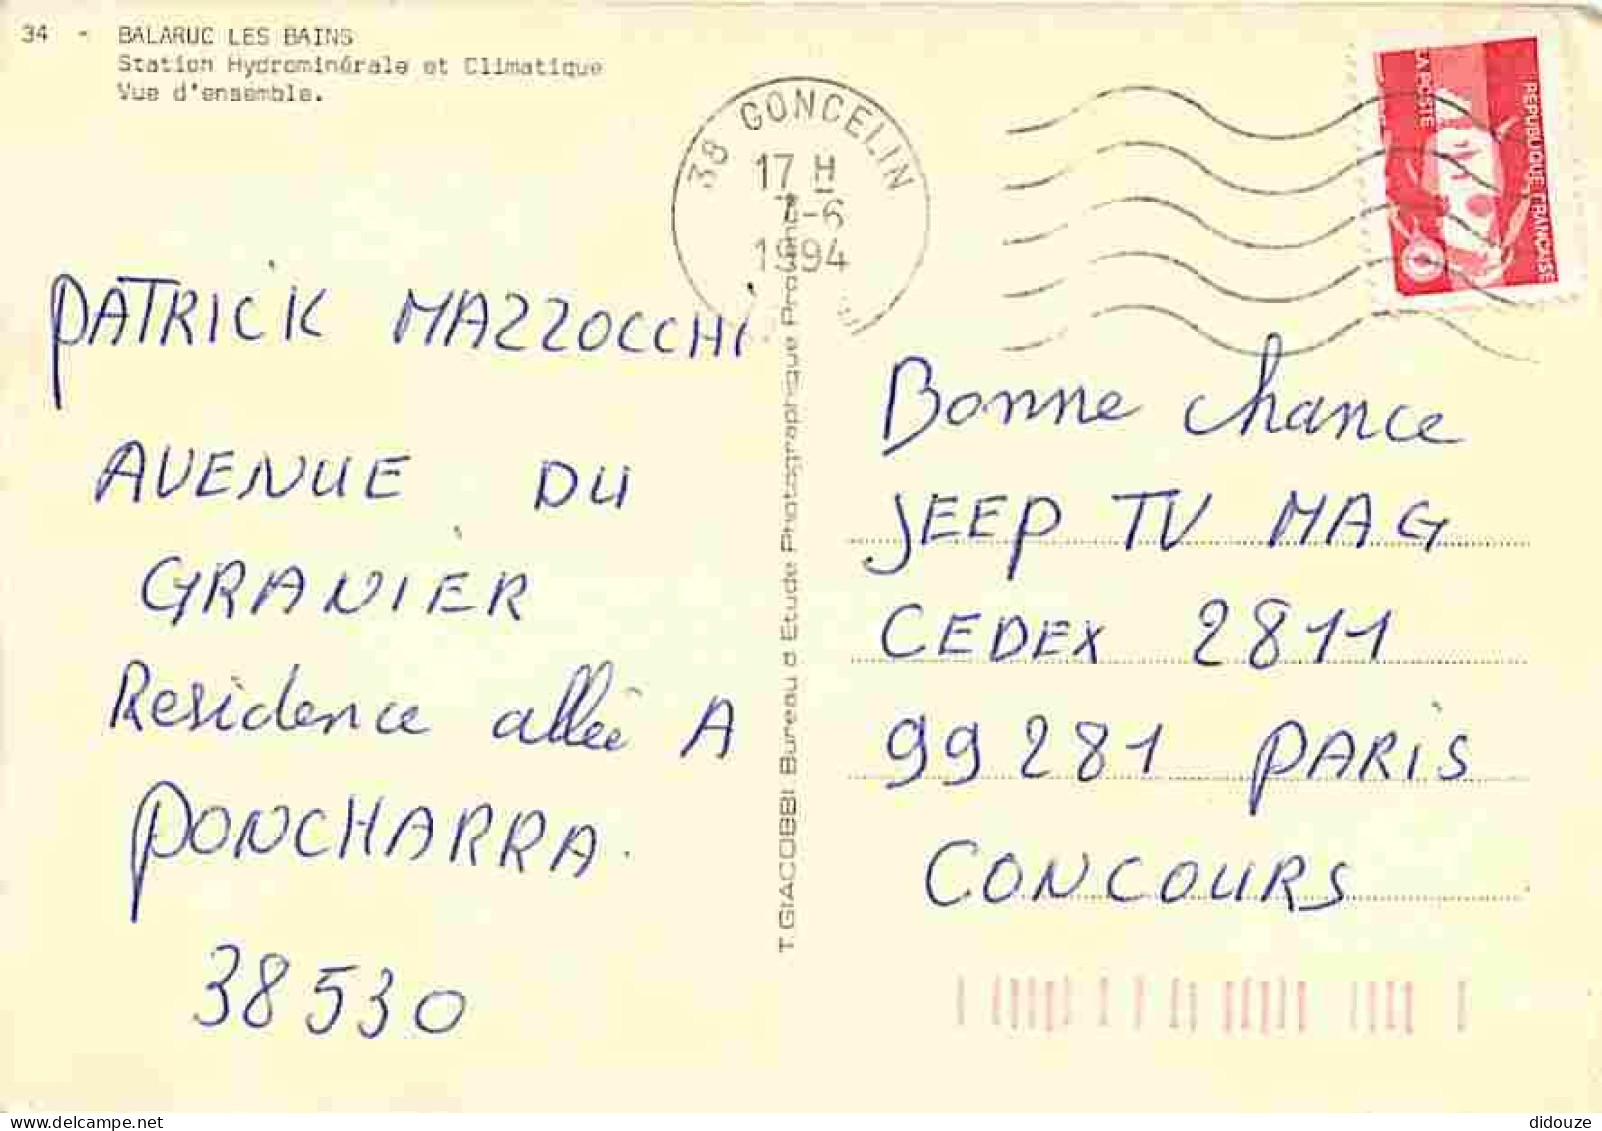 34 - BALARUC LES BAINS
Station Hydrominérale et Climatique
Vue d'ensemble.
38 GONCELIN
17 H
7-6
1994
LA POSTE
REPUBLIQUE FRANÇAISE
PATRICK MAZZOCCHI
AVENUE DU
GRANIER
Residence allée A
PONCHARRA.
38530
T. GIACOBBI. Bureau d'Etude Photographique
Bonne chance
JEEP TV MAG
CEDEX 2811
99281 PARIS
CONCOURS
www.delcampe.net
didouze